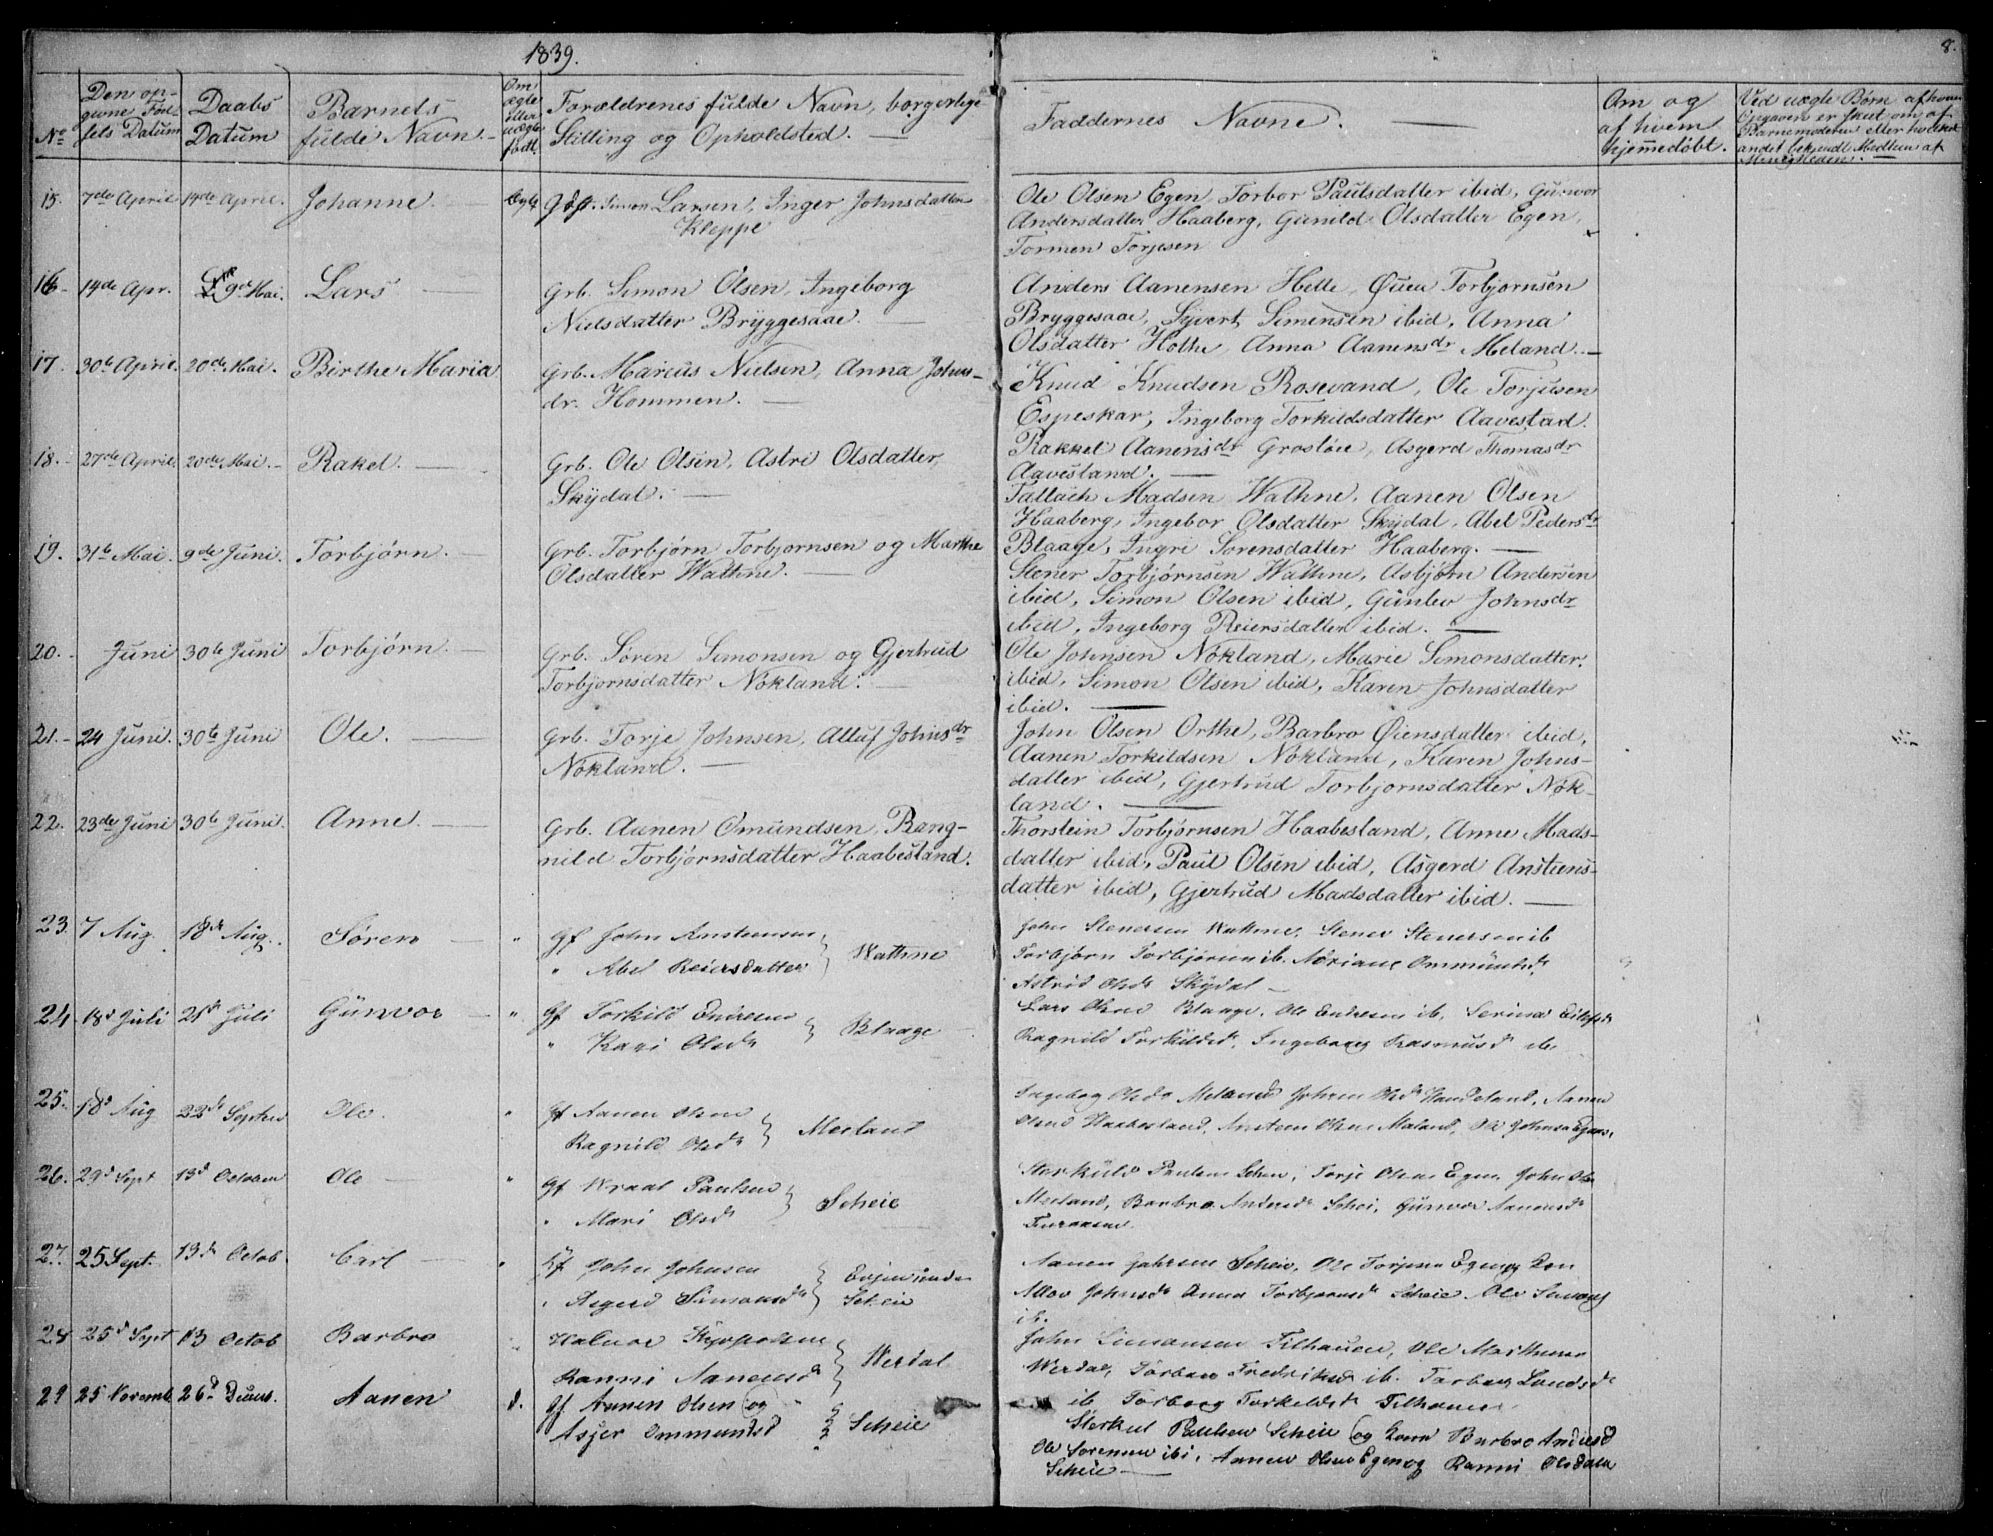 1839.
8.
No
Den op-
givne Fød-
sels Datum
Daabs
Datum
Barnets
fulde Navn.
Om
ægte
eller
uægte
født.
Forældrenes fulde Navn, borgerlige
Stilling og Opholdsted.
Faddernes Navne.
Om og
af hvem
hjemmedøbt.
Ved uægte Børn, af hvem
Opgaven er skeet om af
Barnemoderen eller hvilket
andet bekjendt Medlem af
Menigheden.
15. 7de April 14de April. Johanne. Ægte Gdbr. Simon Larsen, Inger Johnsdatter
Kleppe
Ole Olsen Egen, Torbor Paulsdatter ibid, Gunvor
Andersdatter Haaberg, Gunild Olsdatter Egen,
Tormen Torjesen
16. 14de Apr. 9de Mai. Lars Grb. Simon Olsen, Ingeborg
Nielsdatter Bryggesaae.
Anders Aanensen Helle, Torbjornsen
Bryggesaae, Sijvert Simensen ibid, Anna
Olsdatter Holte, Anna Aanensdr Meland.
17. 30te April. 20de Mai. Birthe Maria Grb. Marcus Nielsen, Anna Johns-
dr. Hommen.
Knud Knudsen Rosevand, Ole Torjusen
Espeskar, Ingeborg Torkildsdatter Aavestad.
Rakkel Aanensdr Grosløie, Asgerd Thomasdr
Aavesland.
18. 27de April. 20de Mai. Rakel. Grb. Ole Olsen, Astri Olsdatter,
Skijdal.
Tallach Madsen Wathne, Aanen Olsen
Haaberg, Ingebor Olsdatter Skijdal, Abel Pedersdr
Blaage, Ingri Sorensdatter Haaberg.
19. 31te Mai. 9de Juni. Torbjørn. Grb. Torbjørn Torbjornsen og Marthe
Olsdatter Wathne.
Stener Torbjørnsen Wathne, Asbjørn Andersen
ibid, Simon Olsen ibid, Gunlev Johnsdr
ibid, Ingeborg Reiersdatter ibid.
20. Juni 30te Juni Torbjørn. Grb. Søren Simonsen og Gjertrud
Torbjornsdatter Nøkland.
Ole Johnsen Nøkland, Marie Simonsdatter,
ibid, Simon Olsen ibid, Karen Johnsdatter
ibid.
21. 24 Juni. 30te Juni Ole. Grb. Torje Johnsen, Alluf Johnsdr
Nøkland.
John Olsen Orthe, Barbro Øiensdatter ibid,
Aanen Torkildsen Nøkland, Karen Johns-
datter ibid, Gjertrud Torbjornsdatter Nøk-
land.
22. 23de Juni 30te Juni. Anne. Grb. Aanen Omundsen, Rang-
nild Torbjørnsdatter Haabesland.
Thorstein Torbjørnsen Haabesland, Anne Mads-
datter ibid, Paul Olsen ibid, Asgerd Anstens-
datter ibid, Gjertrud Madsdatter ibid.
23. 7 Aug. 18de Aug. Søren " Gf John Anstensen
" Abel Reiersdatter } Wathne
John Stenersen Wathne, Stener Stenersen ib
Torbjørn Torbjørnsen ib. Adriane Ommundsd
Astrid Olsdr Skijdal
24 18d Juli 21de Juli Gunvor " Gf Torkild Endresen
" Kari Olsdr } Blaage
Lars Olsen Blaage, Ole Endresen ib, Serina
Ragnild Torkildsdr, Ingeborg Rasmusd ib
25. 18d Aug 22de Septbr Ole. " Gf Aanen Olsen
Ragnild Olsdr } Meeland
Ingeborg Olsdr Meland Olsdr Haugeland, Aanen
Olsen Haabesland, Ansteen Olsen Meland, Ole Johnsen
26. 29d Sept 13d October Ole " Gf Wraal Paulsen
" Mari Olsdr } Scheie
Sterkuld Paulsen Scheie, Torje Olsen Egen, John
Meeland, Barbro Andersdr Scheie, Gunvor Aanensdr
27. 25 Sept. 13de Octob. Carl " John Johnsen
" Asgerd Simonsdr } Scheie
Aanen Johnsen Scheie, Ole Torjesen Egen og Kon
Allov Johnsdr Anna Torbjørnsdr Scheie. Ole
ib.
28 25d Sept 13 Octob Barbro Halvor
Ranni Aanensd } Werdal
John Simonsen Tilhauen, Ole
Werdal, Torbor Fredriksd ib. Torborg
ib Torborg Torkildsdr Tilhauen
29 25 Novemb 26d Decemb. Aanen d. Gf Aanen Olsen og
Asjer Ommundsd } Scheie
Sterkul Paulsen Scheie og Kone Barbro Andersd
Ole Sorensen ibi, Aanen Olsen Egen og Ranni Olsdatter
Scheie